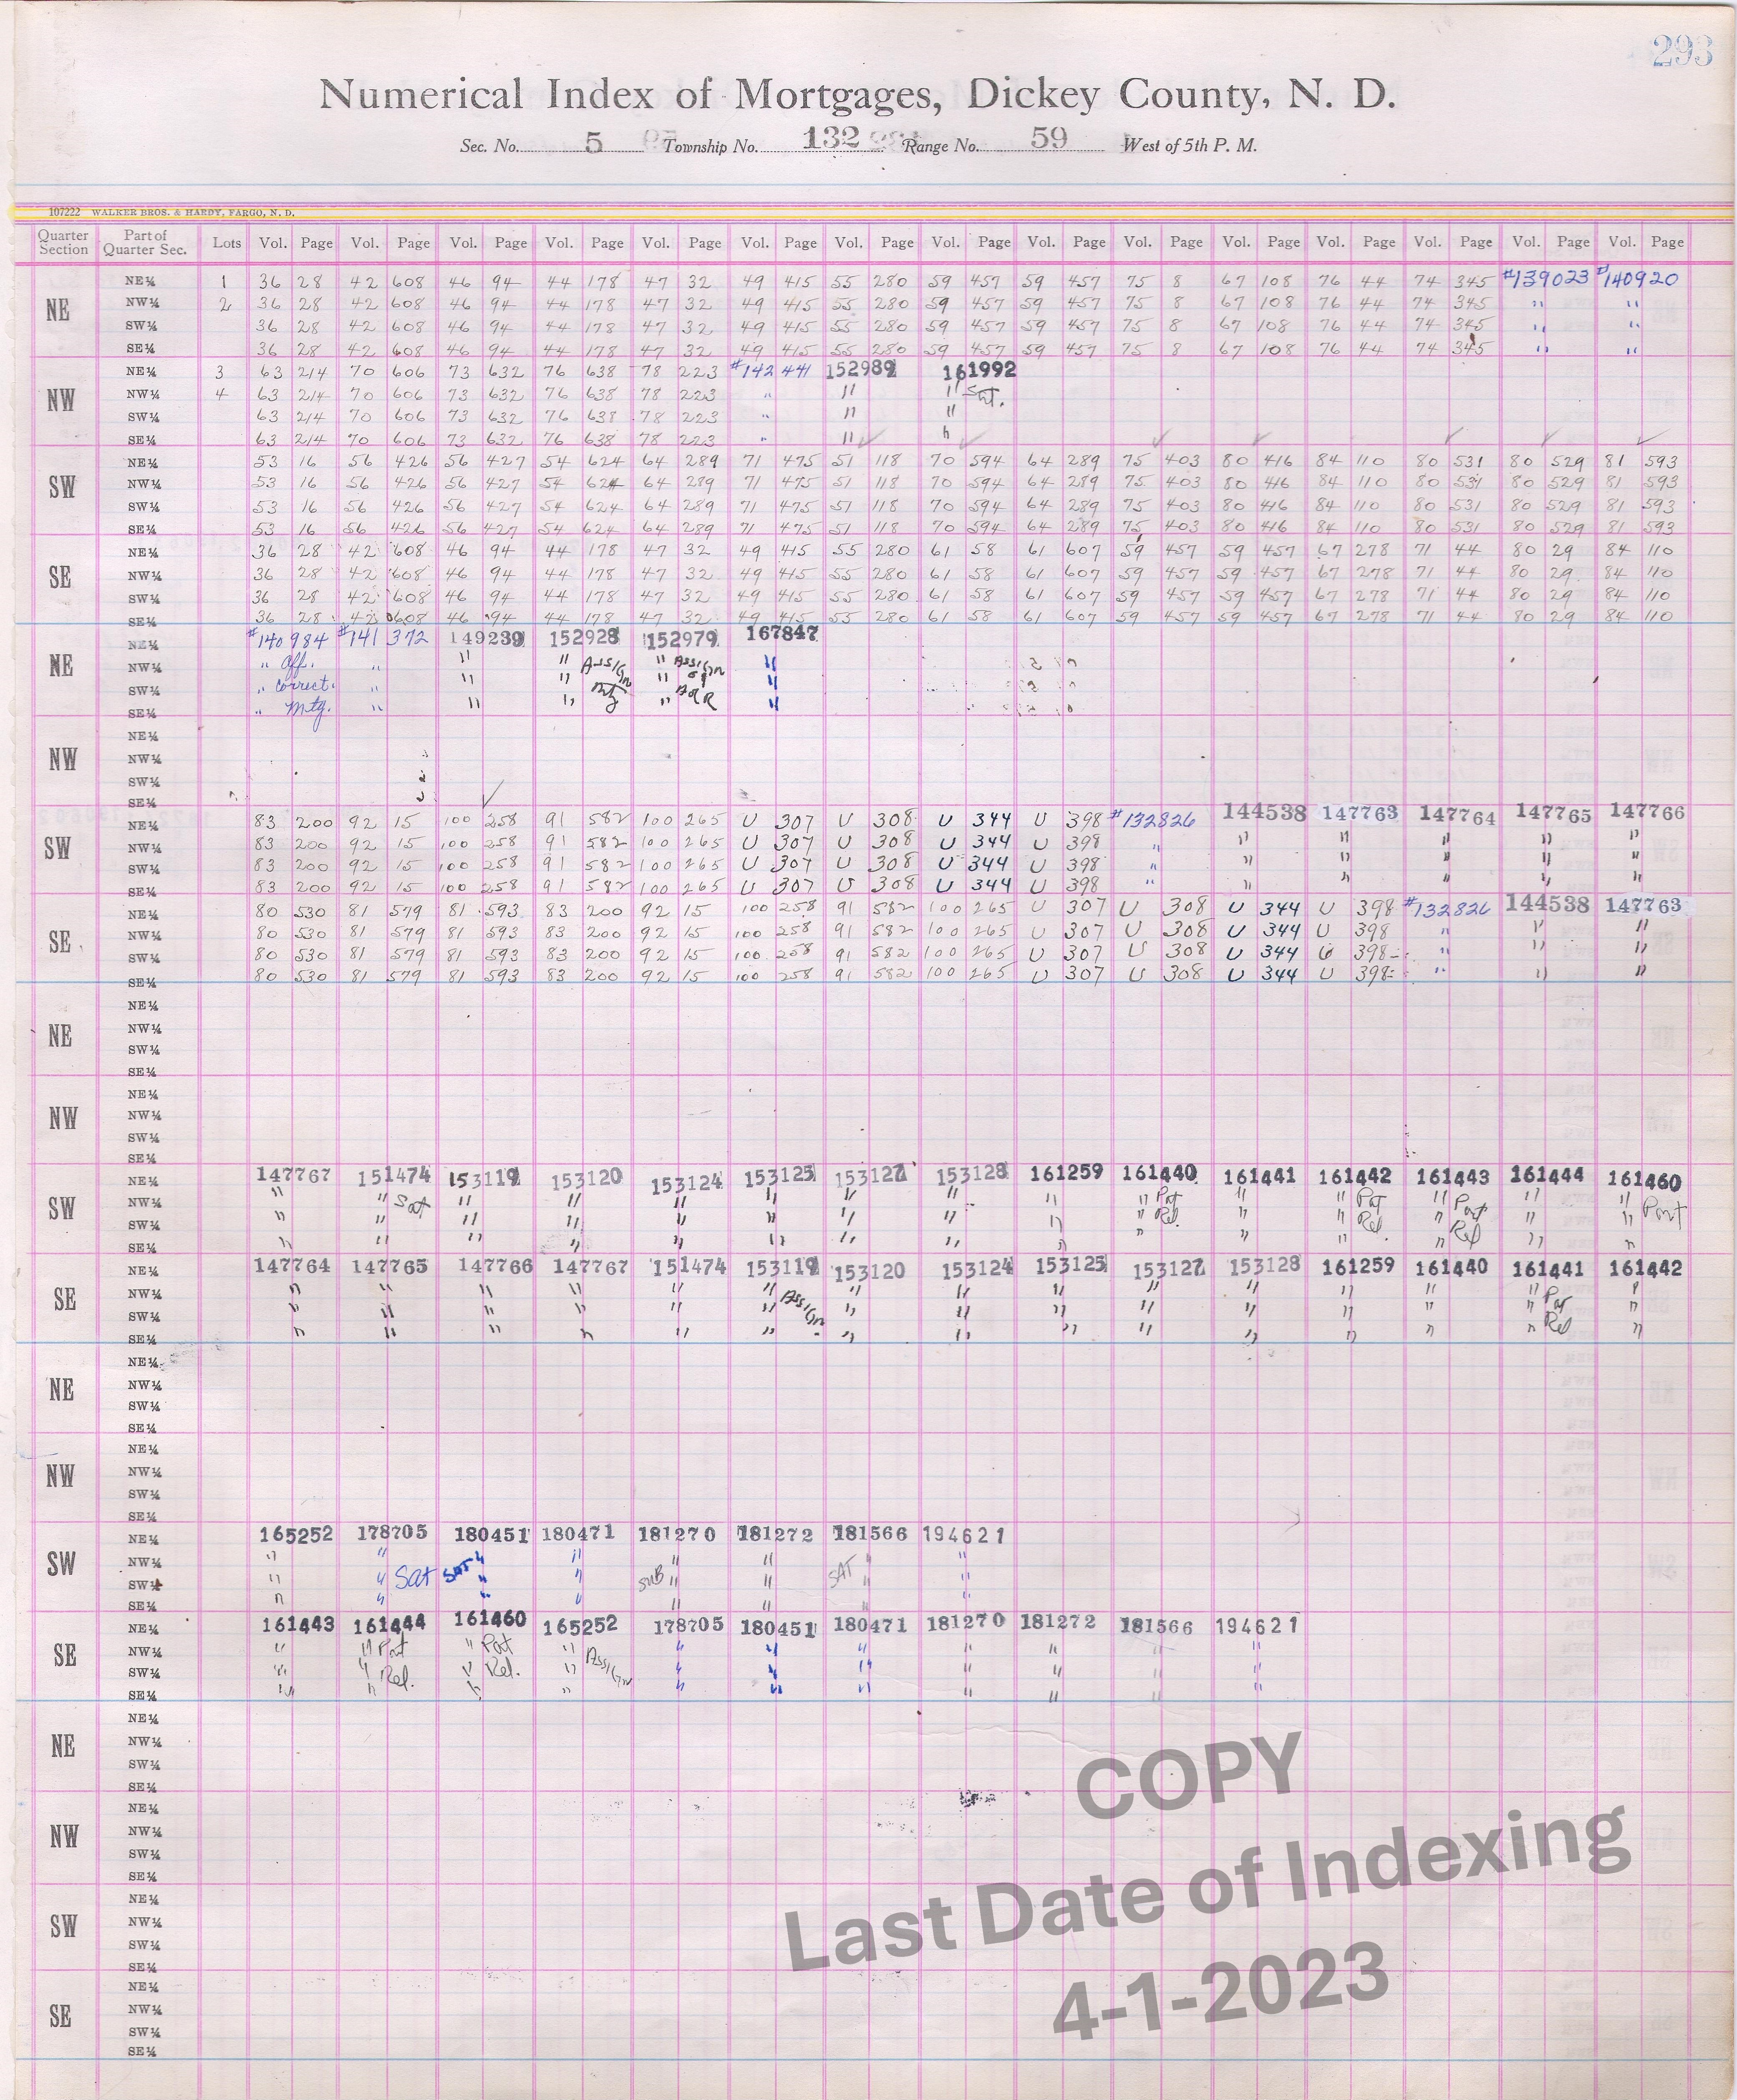 293
Numerical Index of Mortgages, Dickey County, N. D.
Sec. No. 5 Township No. 132 Range No. 59 West of 5th P. M.
107222 WALKER BROS. & HARDY, FARGO, N. D.
Quarter Section Part of Quarter Sec. Lots Vol. Page Vol. Page Vol. Page Vol. Page Vol. Page Vol. Page Vol. Page Vol. Page Vol. Page Vol. Page Vol. Page Vol. Page Vol. Page Vol. Page Vol. Page
NE NE¼ 1 36 28 42 608 46 94 44 178 47 32 49 415 55 280 59 457 59 457 75 8 67 108 76 44 74 345 #139023 #140920
NW¼ 2 36 28 42 608 46 94 44 178 47 32 49 415 55 280 59 457 59 457 75 8 67 108 76 44 74 345 " "
SW¼ 36 28 42 608 46 94 44 178 47 32 49 415 55 280 59 457 59 457 75 8 67 108 76 44 74 345 " "
SE¼ 36 28 42 608 46 94 44 178 47 32 49 415 55 280 59 457 59 457 75 8 67 108 76 44 74 345 " "
NW NE¼ 3 63 214 70 606 73 632 76 638 78 223 #142441 152989 161992
NW¼ 4 63 214 70 606 73 632 76 638 78 223 " " " Sat.
SW¼ 63 214 70 606 73 632 76 638 78 223 " " "
SE¼ 63 214 70 606 73 632 76 638 78 223 " " "
SW NE¼ 53 16 56 426 56 427 54 624 64 289 71 475 51 118 70 594 64 289 75 403 80 416 84 110 80 531 80 529 81 593
NW¼ 53 16 56 426 56 427 54 624 64 289 71 475 51 118 70 594 64 289 75 403 80 416 84 110 80 531 80 529 81 593
SW¼ 53 16 56 426 56 427 54 624 64 289 71 475 51 118 70 594 64 289 75 403 80 416 84 110 80 531 80 529 81 593
SE¼ 53 16 56 426 56 427 54 624 64 289 71 475 51 118 70 594 64 289 75 403 80 416 84 110 80 531 80 529 81 593
SE NE¼ 36 28 42 608 46 94 44 178 47 32 49 415 55 280 61 58 61 607 59 457 59 457 67 278 71 44 80 29 84 110
NW¼ 36 28 42 608 46 94 44 178 47 32 49 415 55 280 61 58 61 607 59 457 59 457 67 278 71 44 80 29 84 110
SW¼ 36 28 42 608 46 94 44 178 47 32 49 415 55 280 61 58 61 607 59 457 59 457 67 278 71 44 80 29 84 110
SE¼ 36 28 42 608 46 94 44 178 47 32 49 415 55 280 61 58 61 607 59 457 59 457 67 278 71 44 80 29 84 110
NE NE¼ #140984 #141372 149239 152928 152979 167847
NW¼ " Aff. " " " Assign " Assign "
SW¼ " correct. " " " Mtg " of "
SE¼ " Mtg. " " " " AofR "
NW NE¼
NW¼
SW¼
SE¼
SW NE¼ 83 200 92 15 100 258 91 582 100 265 U 307 U 308 U 344 U 398 #132826 144538 147763 147764 147765 147766
NW¼ 83 200 92 15 100 258 91 582 100 265 U 307 U 308 U 344 U 398 " " " " " "
SW¼ 83 200 92 15 100 258 91 582 100 265 U 307 U 308 U 344 U 398 " " " " " "
SE¼ 83 200 92 15 100 258 91 582 100 265 U 307 U 308 U 344 U 398 " " " " " "
SE NE¼ 80 530 81 579 81 593 83 200 92 15 100 258 91 582 100 265 U 307 U 308 U 344 U 398 #132826 144538 147763
NW¼ 80 530 81 579 81 593 83 200 92 15 100 258 91 582 100 265 U 307 U 308 U 344 U 398 " " "
SW¼ 80 530 81 579 81 593 83 200 92 15 100 258 91 582 100 265 U 307 U 308 U 344 U 398 " " "
SE¼ 80 530 81 579 81 593 83 200 92 15 100 258 91 582 100 265 U 307 U 308 U 344 U 398 " " "
NE NE¼
NW¼
SW¼
SE¼
NW NE¼
NW¼
SW¼
SE¼
SW NE¼ 147767 151474 153119 153120 153124 153125 153127 153128 161259 161440 161441 161442 161443 161444 161460
NW¼ " " Sat " " " " " " " " Pat " " Pat " Part " " Part
SW¼ " " " " " " " " " " Rel. " " Rel " Rel " "
SE¼ " " " " " " " " " " " " " " "
SE NE¼ 147764 147765 147766 147767 151474 153119 153120 153124 153125 153127 153128 161259 161440 161441 161442
NW¼ " " " " " " Assign " " " " " " " " Par "
SW¼ " " " " " " " " " " " " " " Rel "
SE¼ " " " " " " " " " " " " " " "
NE NE¼
NW¼
SW¼
SE¼
NW NE¼
NW¼
SW¼
SE¼
SW NE¼ 165252 178705 180451 180471 181270 181272 181566 194621
NW¼ " " " " " " " "
SW¼ " " Sat SAT " " SUB " " SAT " "
SE¼ " " " " " " " "
SE NE¼ 161443 161444 161460 165252 178705 180451 180471 181270 181272 181566 194621
NW¼ " " Part " Part " Assign " " " " " " "
SW¼ " " Rel. " Rel. " " " " " " " "
SE¼ " " " " " " " " " " "
NE NE¼
NW¼
SW¼
SE¼
NW NE¼
NW¼
SW¼
SE¼
SW NE¼
NW¼
SW¼
SE¼
SE NE¼
NW¼
SW¼
SE¼
COPY
Last Date of Indexing
4-1-2023